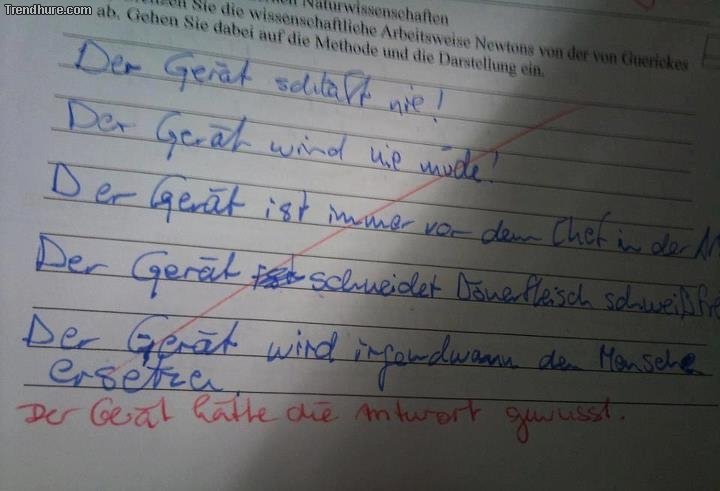 Trendhure.com
Naturwissenschaften
Sie die wissenschaftliche Arbeitsweise Newtons von der von Guerickes
ab. Gehen Sie dabei auf die Methode und die Darstellung ein.
Der Gerät schläft nie!
Der Gerät wird nie müde!
Der Gerät ist immer vor dem Chef in der
Der Gerät schneidet Dönerfleisch
Der Gerät wird irgendwann den Menschen
ersetzen.
Der Gerät hätte die Antwort gewusst.